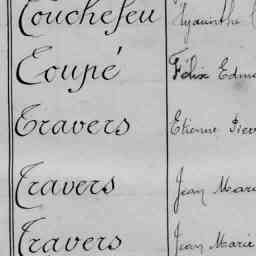 Touchefeu Hyacinthe
Toupé Félix Edm
Travers Etienne Pier
Travers Jean Mar
Travers Jean Marie